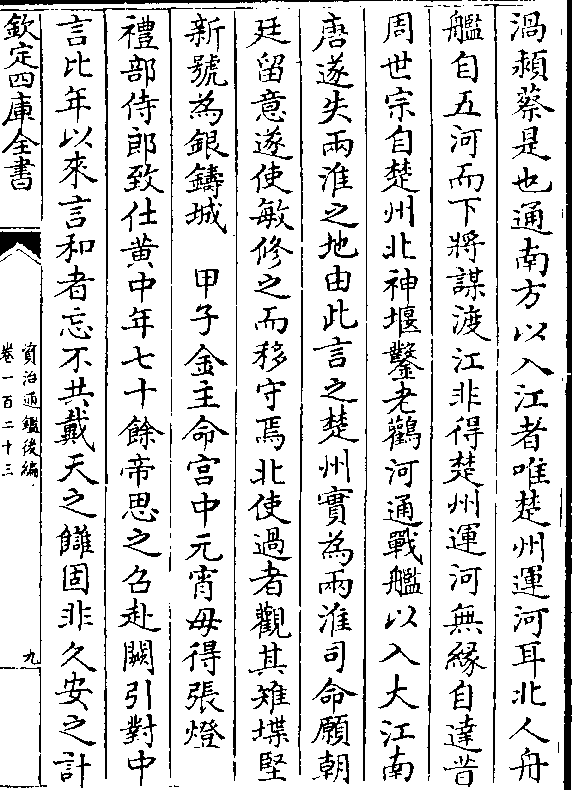 渦潁蔡是也通南方以入江者唯楚州運河耳北人舟
艦自五河而下將謀渡江非得楚州運河無緣自達昔
周世宗自楚州北神堰鑿老鸛河通戰艦以入大江南
唐遂失兩淮之地由此言之楚州實為兩淮司命願朝
廷留意遂使敏修之而移守焉北使過者觀其雉堞堅
新號為銀鑄城　甲子金主命宫中元宵毋得張燈
禮部侍郎致仕黄中年七十餘帝思之召赴闕引對中
言比年以來言和者忘不共戴天之讎固非久安之計
欽定四庫全書
資治通鑑後編
卷一百二十三
九